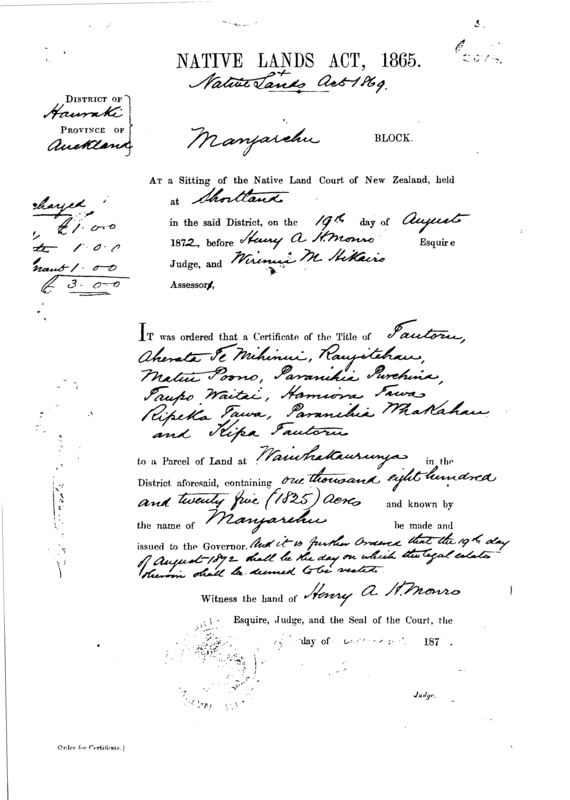 3.
NATIVE LANDS ACT, 1865.
+
Native Lands Act 1869.
DISTRICT OF
Hauraki
PROVINCE OF
Auckland
BLOCK.
AT a Sitting of the Native Land Court of New Zealand, held
at Shortland
charged
£1.0.0
1.0.0
1.0.0
£3.0.0
in the said District, on the 19th day of August
1872, before Henry A H Monro Esquire
Judge, and Wiremu M Hikairo
Assessor,
IT was ordered that a Certificate of the Title of Tautoru,
Aherata Te Mihinui, Rangitehau,
Matiu Poono, Paranihia
Taupo Waitai, Hamiora Tawa
Ripeka Tawa, Paranihia Whakahau
and Kipa Tautoru
to a Parcel of Land at in the
District aforesaid, containing one thousand eight hundred
and twenty five (1825) Acres and known by
the name of be made and
issued to the Governor. And it is further Ordered that the 19th day
of August 1872 shall be the day on which the legal estate
therein shall be deemed to be vested.
Witness the hand of Henry A H Monro
Esquire, Judge, and the Seal of the Court, the
day of 187
Judge.
Order for Certificate.]